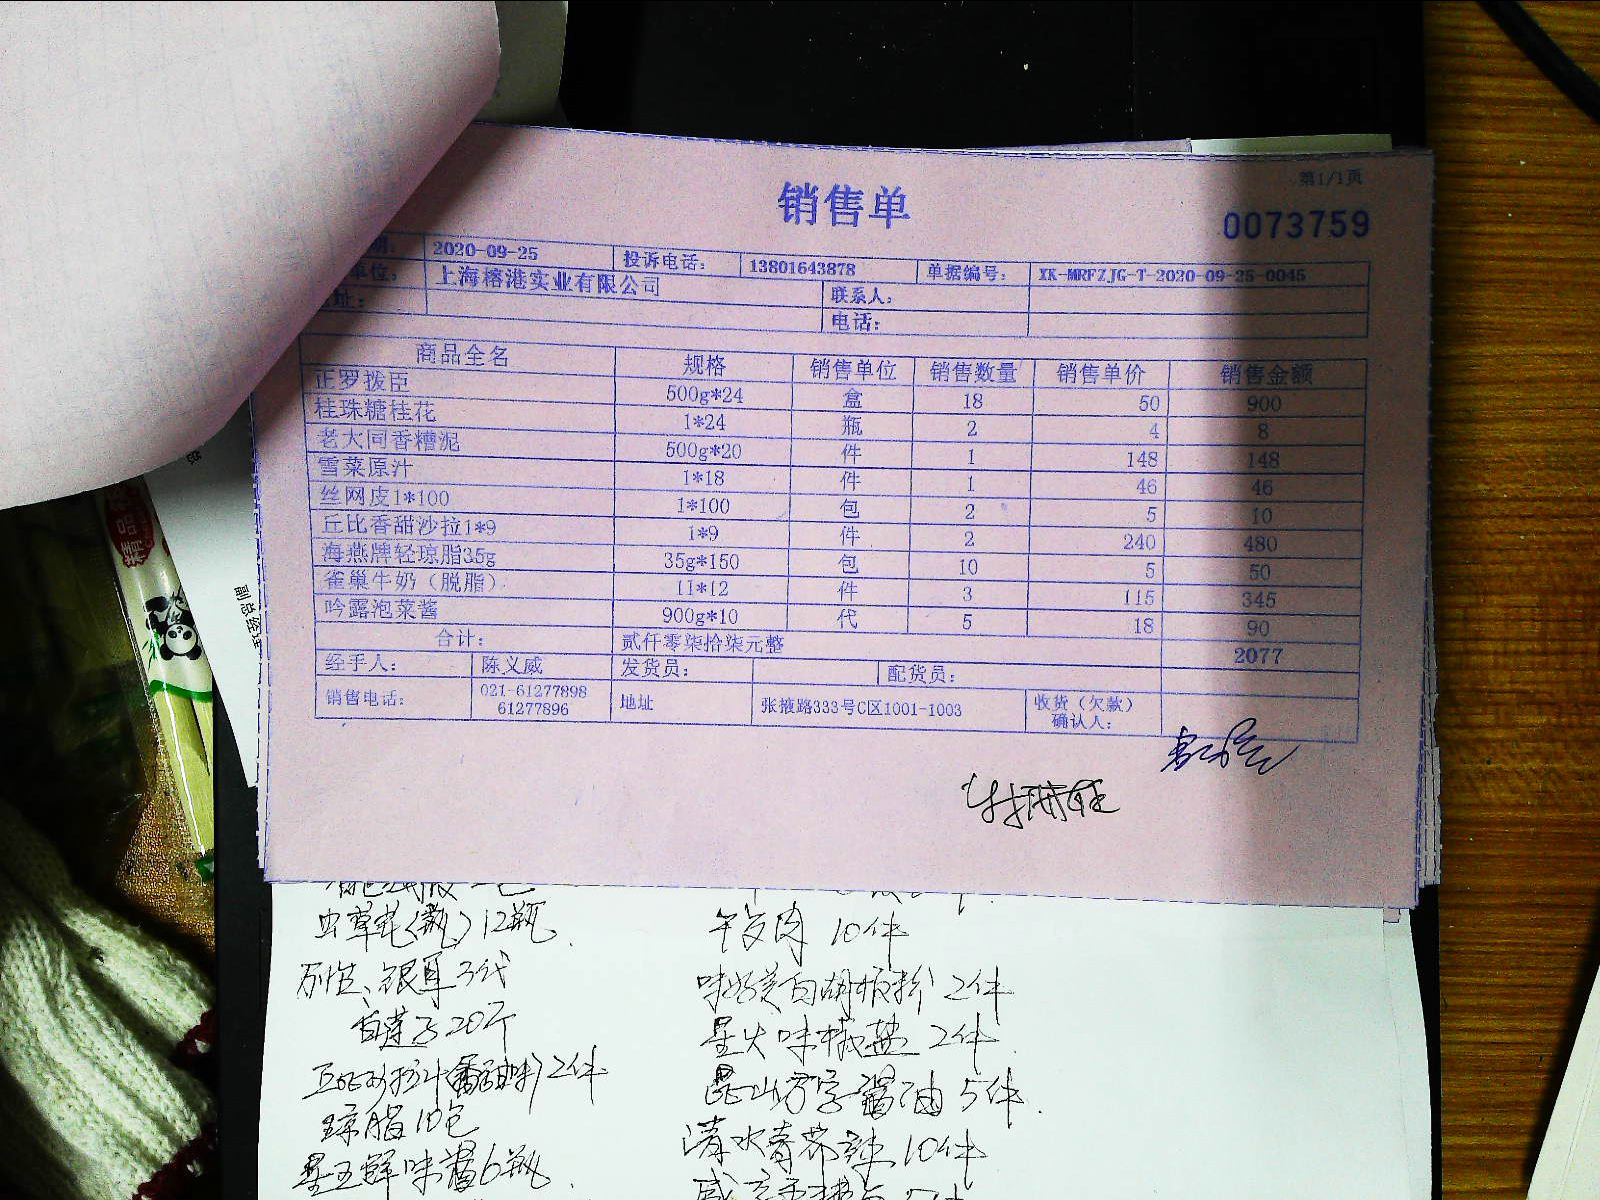 销售单
第1/1页
0073759
期: 2020-09-25 投诉电话: 13801643878 单据编号: XK-MRFZJG-T-2020-09-25-0045
单位: 上海榕港实业有限公司 联系人:
址: 电话:
商品全名 规格 销售单位 销售数量 销售单价 销售金额
正罗拨臣 500g*24 盒 18 50 900
桂珠糖桂花 1*24 瓶 2 4 8
老大同香糟泥 500g*20 件 1 148 148
雪菜原汁 1*18 件 1 46 46
丝网皮1*100 1*100 包 2 5 10
丘比香甜沙拉1*9 1*9 件 2 240 480
海燕牌轻琼脂35g 35g*150 包 10 5 50
雀巢牛奶（脱脂） 1l*12 件 3 115 345
吟露泡菜酱 900g*10 代 5 18 90
合计: 贰仟零柒拾柒元整 2077
经手人: 陈义威 发货员: 配货员:
销售电话: 021-61277898 61277896 地址 张掖路333号C区1001-1003 收货（欠款）确认人:
虫草花(瓶) 12瓶
午夕肉 10件
银耳 3代
白胡椒粉 2件
20个
星火味椒盐 2件
2件
昆山方字酱油 5件
琼脂 10包
10件
鲜味酱 6瓶
精品
副总经理